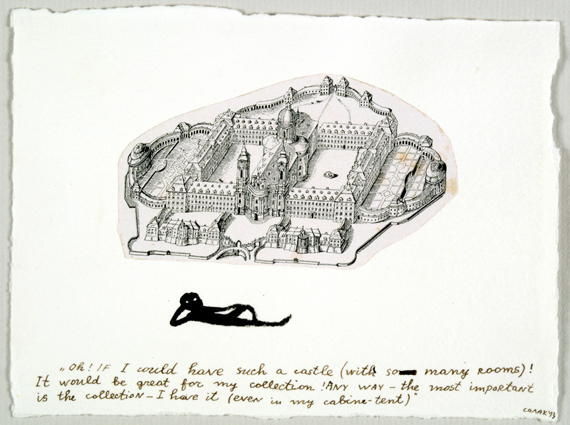 „Oh! IF I could have such a castle (with so many ROOMS)!
It would be great for my collection! ANY WAY – the most important
is the collection – I have it (even in my cabine-tent)"